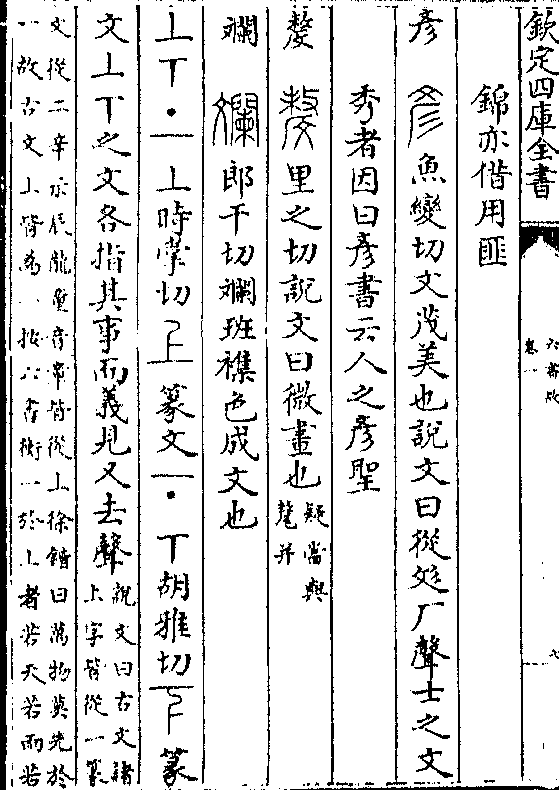 欽定四庫全書
六書故
卷一
錦亦借用匪
彦 魚變切文茂美也說文曰從彣厂聲士之文
秀者因曰彦書云人之彦聖
斄 里之切說文曰微畫也
疑當與
氂并
斕 郎干切斕班襍色成文也
丄丅·一 丄時掌切 篆文一·丅胡雅切 篆
文丄丅之文各指其事而義見又去聲
說文曰古文諸
上字皆從一篆
文從二辛示辰龍童音章皆從丄徐鍇曰萬物莫先於
一故古文上皆為一按六書術一於丄者若天若雨若